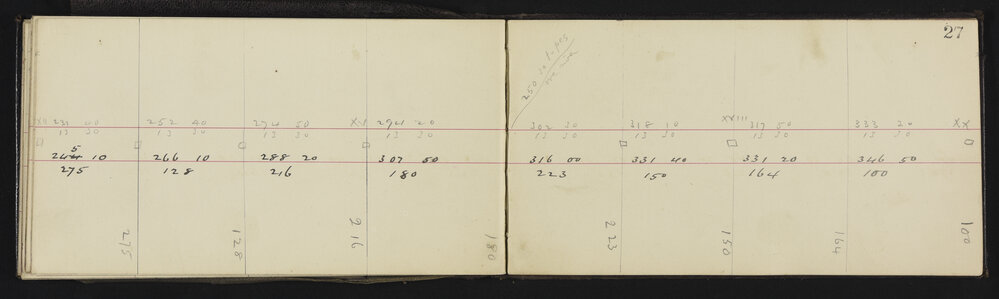 27
250 in
XII 231 40 252 40 274 50 XV 294 20
13 30 13 30 13 30 13 30
5
244 10 266 10 288 20 307 50
275 128 216 180
275 128 216 180
302 30 318 10 XXIII 317 50 333 20 XX
13 30 13 30 13 30 13 30
316 00 331 40 331 20 346 50
223 150 164 100
223 150 164 100